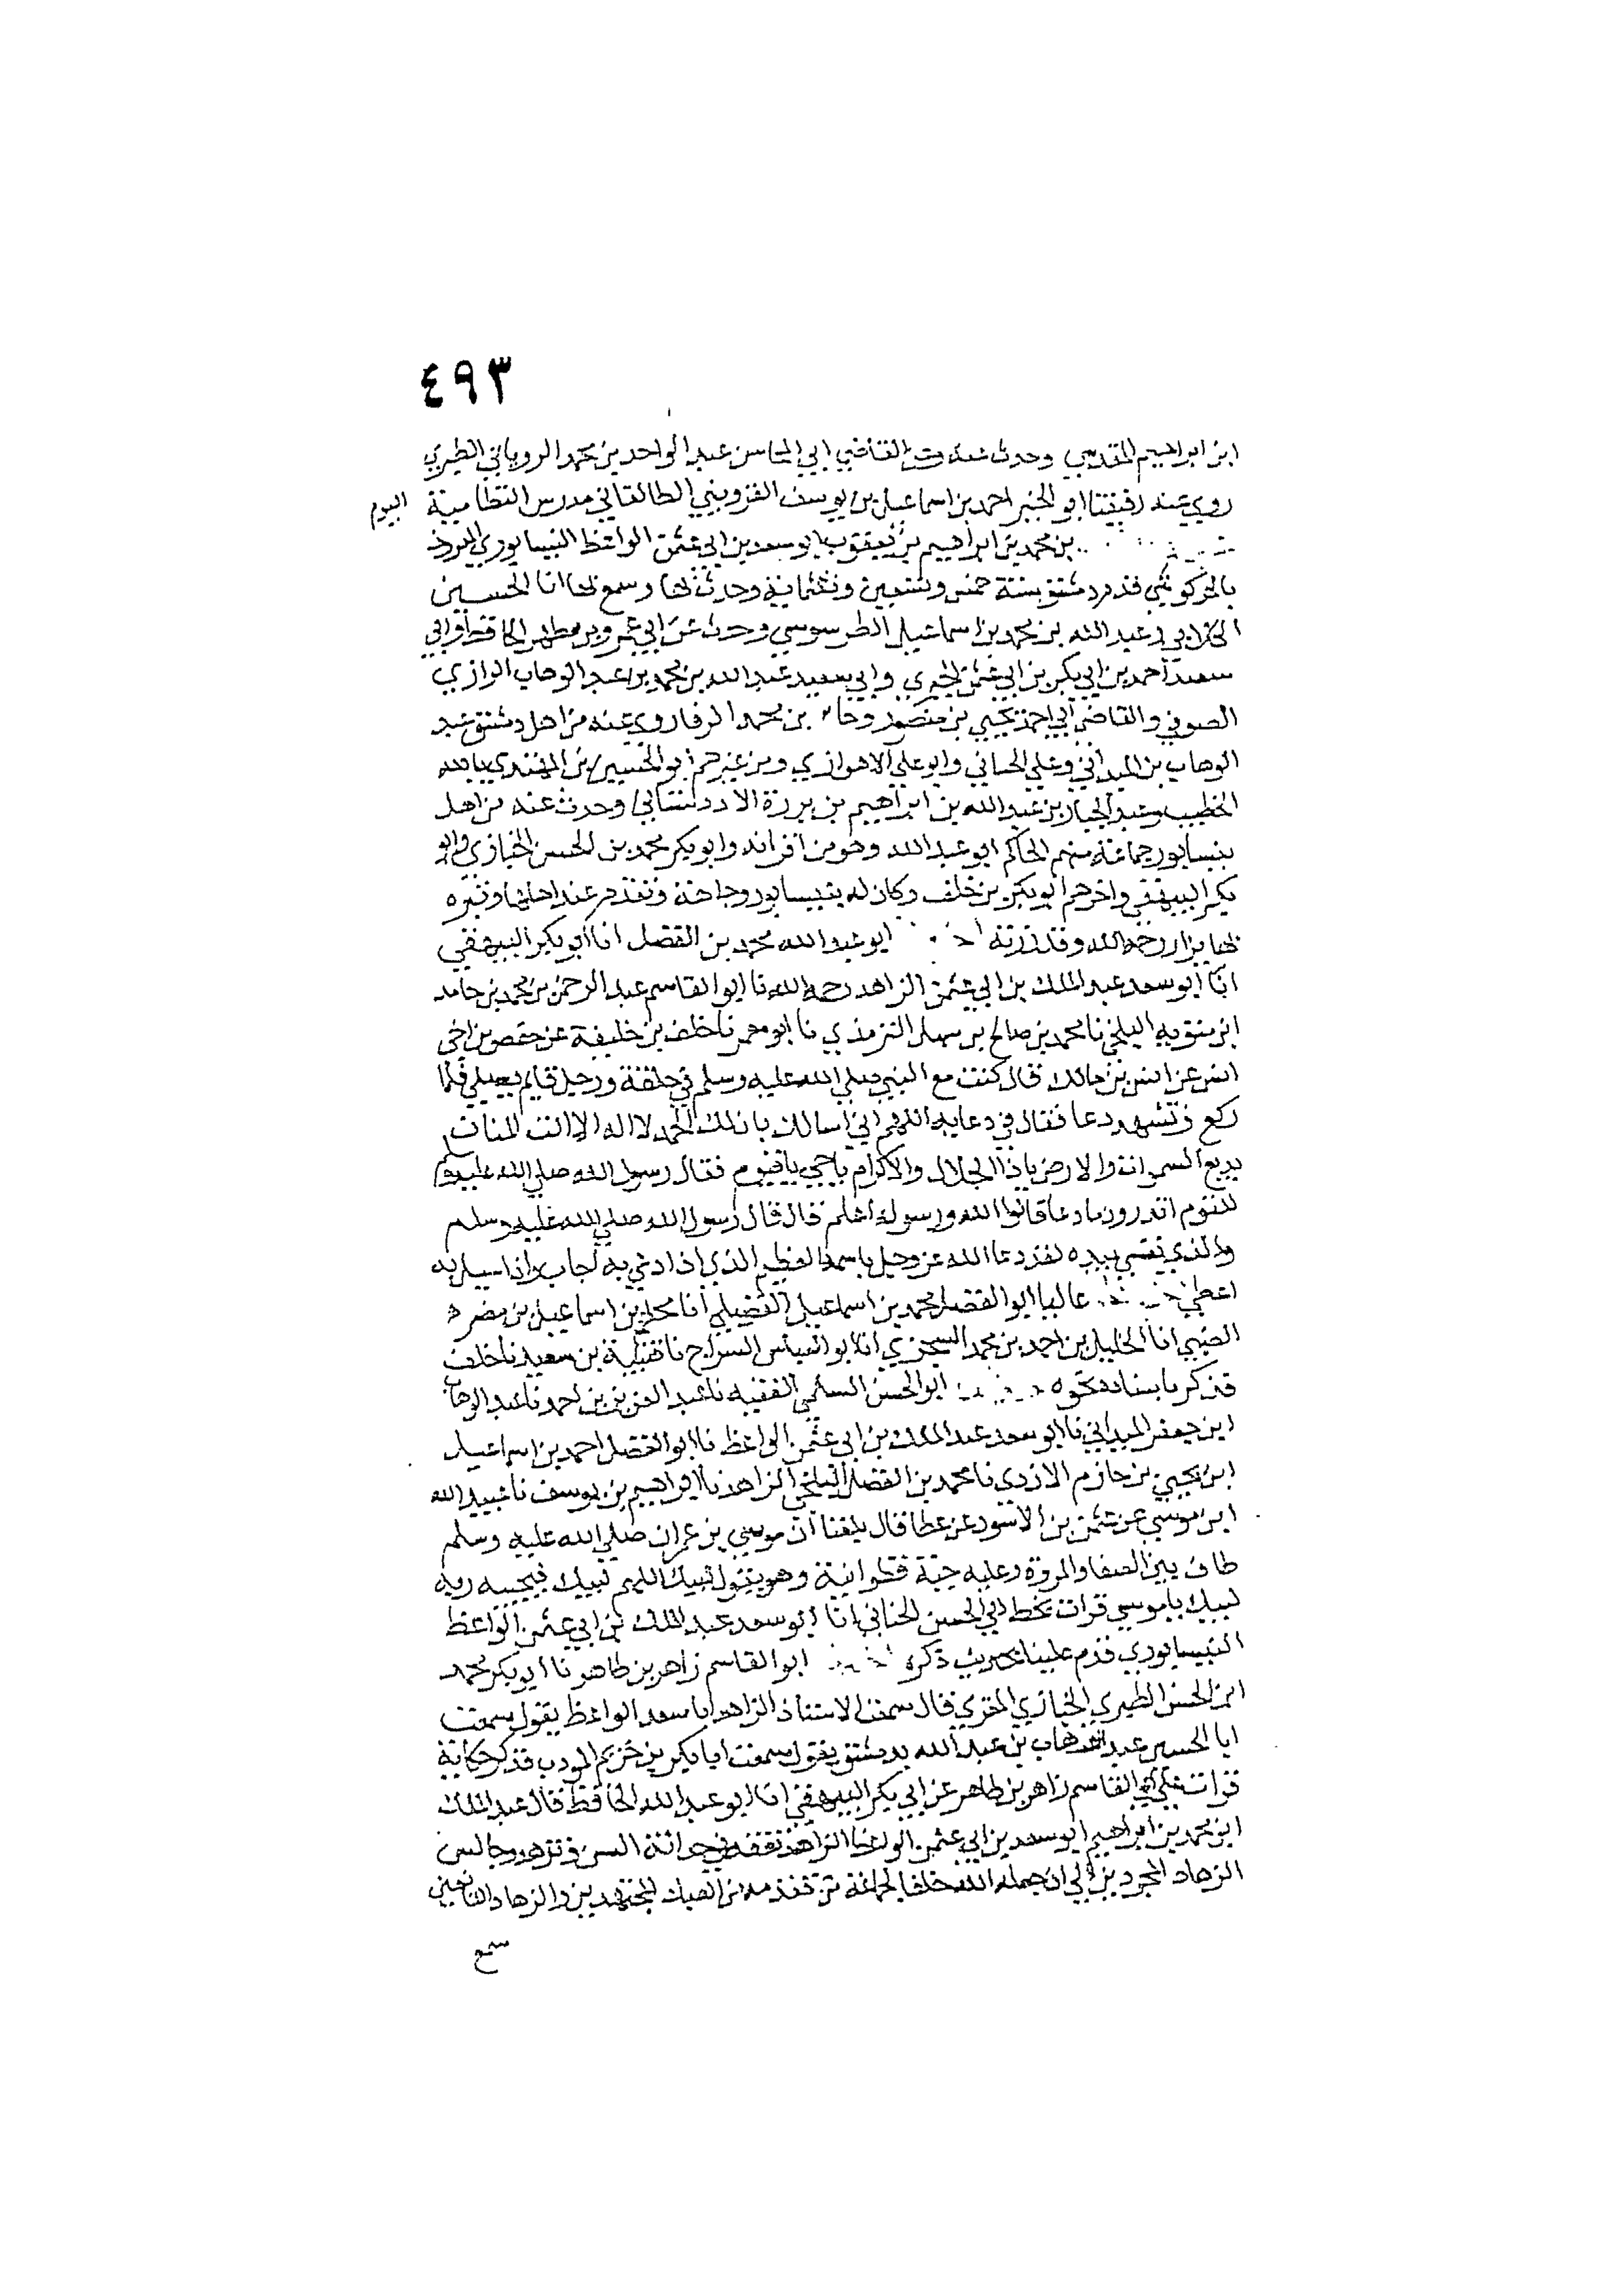 ٤٩٣
ابن ابراهيم المقدسي وحدث عنه وعن القاضي ابي المحاسن عبد الواحد بن محمد الروياني الطبري
روي عنه رفيقنا ابو الخير احمد بن اسماعيل بن يوسف القزويني الطالقاني مدرس النظامية اليوم
بن محمد بن ابراهيم بن يعقوب ابو سعد بن ابي عثمن الواعظ النيسابوري المعروف
بالخركوشي قدم دمشق سنة خمس وتسعين وثلثمائة وحدث بها وسمع بها انا الحسين
الكلابي وعبد الله بن محمد بن اسماعيل الطرسوسي وحدث عن ابي عمرو بن مطهر الحافظ وابي
سعيد احمد بن ابي بكر بن ابي عثمن الحيري وابي سعيد عبد الله بن محمد بن عبد الوهاب الرازي
الصوفي والقاضي ابي احمد يحيي بن منصور وحا بن محمد الرفا روي عنه من اهل دمشق عبد
الوهاب بن الميداني وعلي الحنائي وابو علي الاهوازي ومن غيرهم ابو الحسين بن المهتدي بالله
الخطيب وعبد الجبار بن عبد الله بن ابراهيم بن برزة الاردستاني وحدث عنه من اهل
نيسابور جماعة منهم الحاكم ابو عبد الله وهو من اقرانه وابو بكر محمد بن الحسن الخبازي وابو
بكر البيهقي واخرهم ابو بكر بن خلف وكان له بنيسابور وجاهة وتقدم عند اهلها وقبره
بها يزار رحمه الله وقد زرته ابو عبد الله محمد بن الفضل انا ابو بكر البيهقي
انا ابو سعد عبد الملك بن ابي عثمن الزاهد رحمه الله نا ابو القاسم عبد الرحمن بن محمد بن حامد
ابن متويه البلخي نا محمد بن صالح بن سهل الترمذي نا ابو معمر نا خلف بن خليفة عن حفص بن اخي
انس عن انس بن مالك قال كنت مع النبي صلي الله عليه وسلم في حلقة ورجل قايم يصلي فلما
ركع وتشهد دعا فقال في دعايه اللهم اني اسالك بان لك الحمد لا اله الا انت المنان
بديع السموات والارض ياذا الجلال والاكرام ياحي ياقيوم فقال رسول الله صلي الله عليه وسلم
للقوم اتدرون ما دعا قالوا الله ورسوله اعلم قال قال رسول الله صلي الله عليه وسلم
والذي نفسي بيده لقد دعا الله عز وجل باسمه العظيم الذي اذا دعي به اجاب واذا سيل به
اعطي عاليا ابو الفضل محمد بن اسماعيل الفضيلي انا محلم بن اسماعيل بن مضر
الضبي انا الخليل بن احمد بن محمد السجزي انا ابو العباس السراج نا قتيبة بن سعيد نا خلف
فذكر باسناده نحوه ابو الحسن السلمي الفقيه نا عبد العزيز بن احمد نا عبد الوهاب
ابن جعفر الميداني نا ابو سعد عبد الملك بن ابي عثمن الواعظ نا ابو الفضل احمد بن اسماعيل
ابن يحيي بن حازم الازدي نا محمد بن الفضل البلخي الزاهد نا ابراهيم بن يوسف نا عبيد الله
ابن موسي عن عثمن بن الاسود عن عطا قال بلغنا ان موسي بن عمران صلي الله عليه وسلم
طاف بين الصفا والمروة وعليه جبة قطوانية وهو يقول لبيك اللهم لبيك فيجيبه ربه
لبيك ياموسي قرات بخط ابي الحسن الحنائي انا ابو سعد عبد الملك بن ابي عثمن الواعظ
النيسابوري قدم علينا بحديث ذكره ابو القاسم زاهر بن طاهر نا ابو بكر محمد
ابن الحسن الطبري الخبازي المقري قال سمعت الاستاذ الزاهد ابا سعد الواعظ يقول سمعت
ابا الحسين عبد الوهاب بن عبد الله بدمشق يقول سمعت ابا بكر بن خزيم المودب فذكر حكاية
قرات علي ابي القاسم زاهر بن طاهر عن ابي بكر البيهقي انا ابو عبد الله الحافظ قال عبد الملك
ابن محمد بن ابراهيم ابو سعد بن ابي عثمن الواعظ الزاهد تفقه في حداثة السن وتزهد وجالس
الزهاد المجردين الي ان جعله الله خلفا لجماعة من تقدمه من العباد المجتهدين والزهاد القانعين
سمع